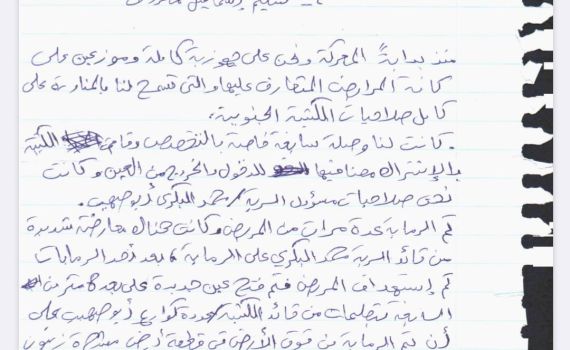 منذ بداية المعركة ونحن على جهوزية كاملة وموزعين على
كافة المرابض المتعارف عليها والتي تسمح لنا بالمناورة على
كامل صلاحيات الكتيبة الجنوبية.
كانت لنا وصلة سابقة خاصة بالتخصص وقامت الكتيبة
بالاشتراك معنا فيها للدخول والخروج من العين وكانت
تحت صلاحيات مسؤول السرية محمد البكري أبو صهيب.
تم الرماية عدة مرات من المربض وكانت هناك معارضة شديدة
من قائد السرية محمد البكري على الرماية بعد أحد الرمايات
تم إستهداف المربض فتم فتح عين جديدة على بعد 8 متر من
السابقة بتعليمات من قائد الكتيبة أبو صهيب على
أن تتم الرماية من فوق الأرض في قطعة أرض زيتون